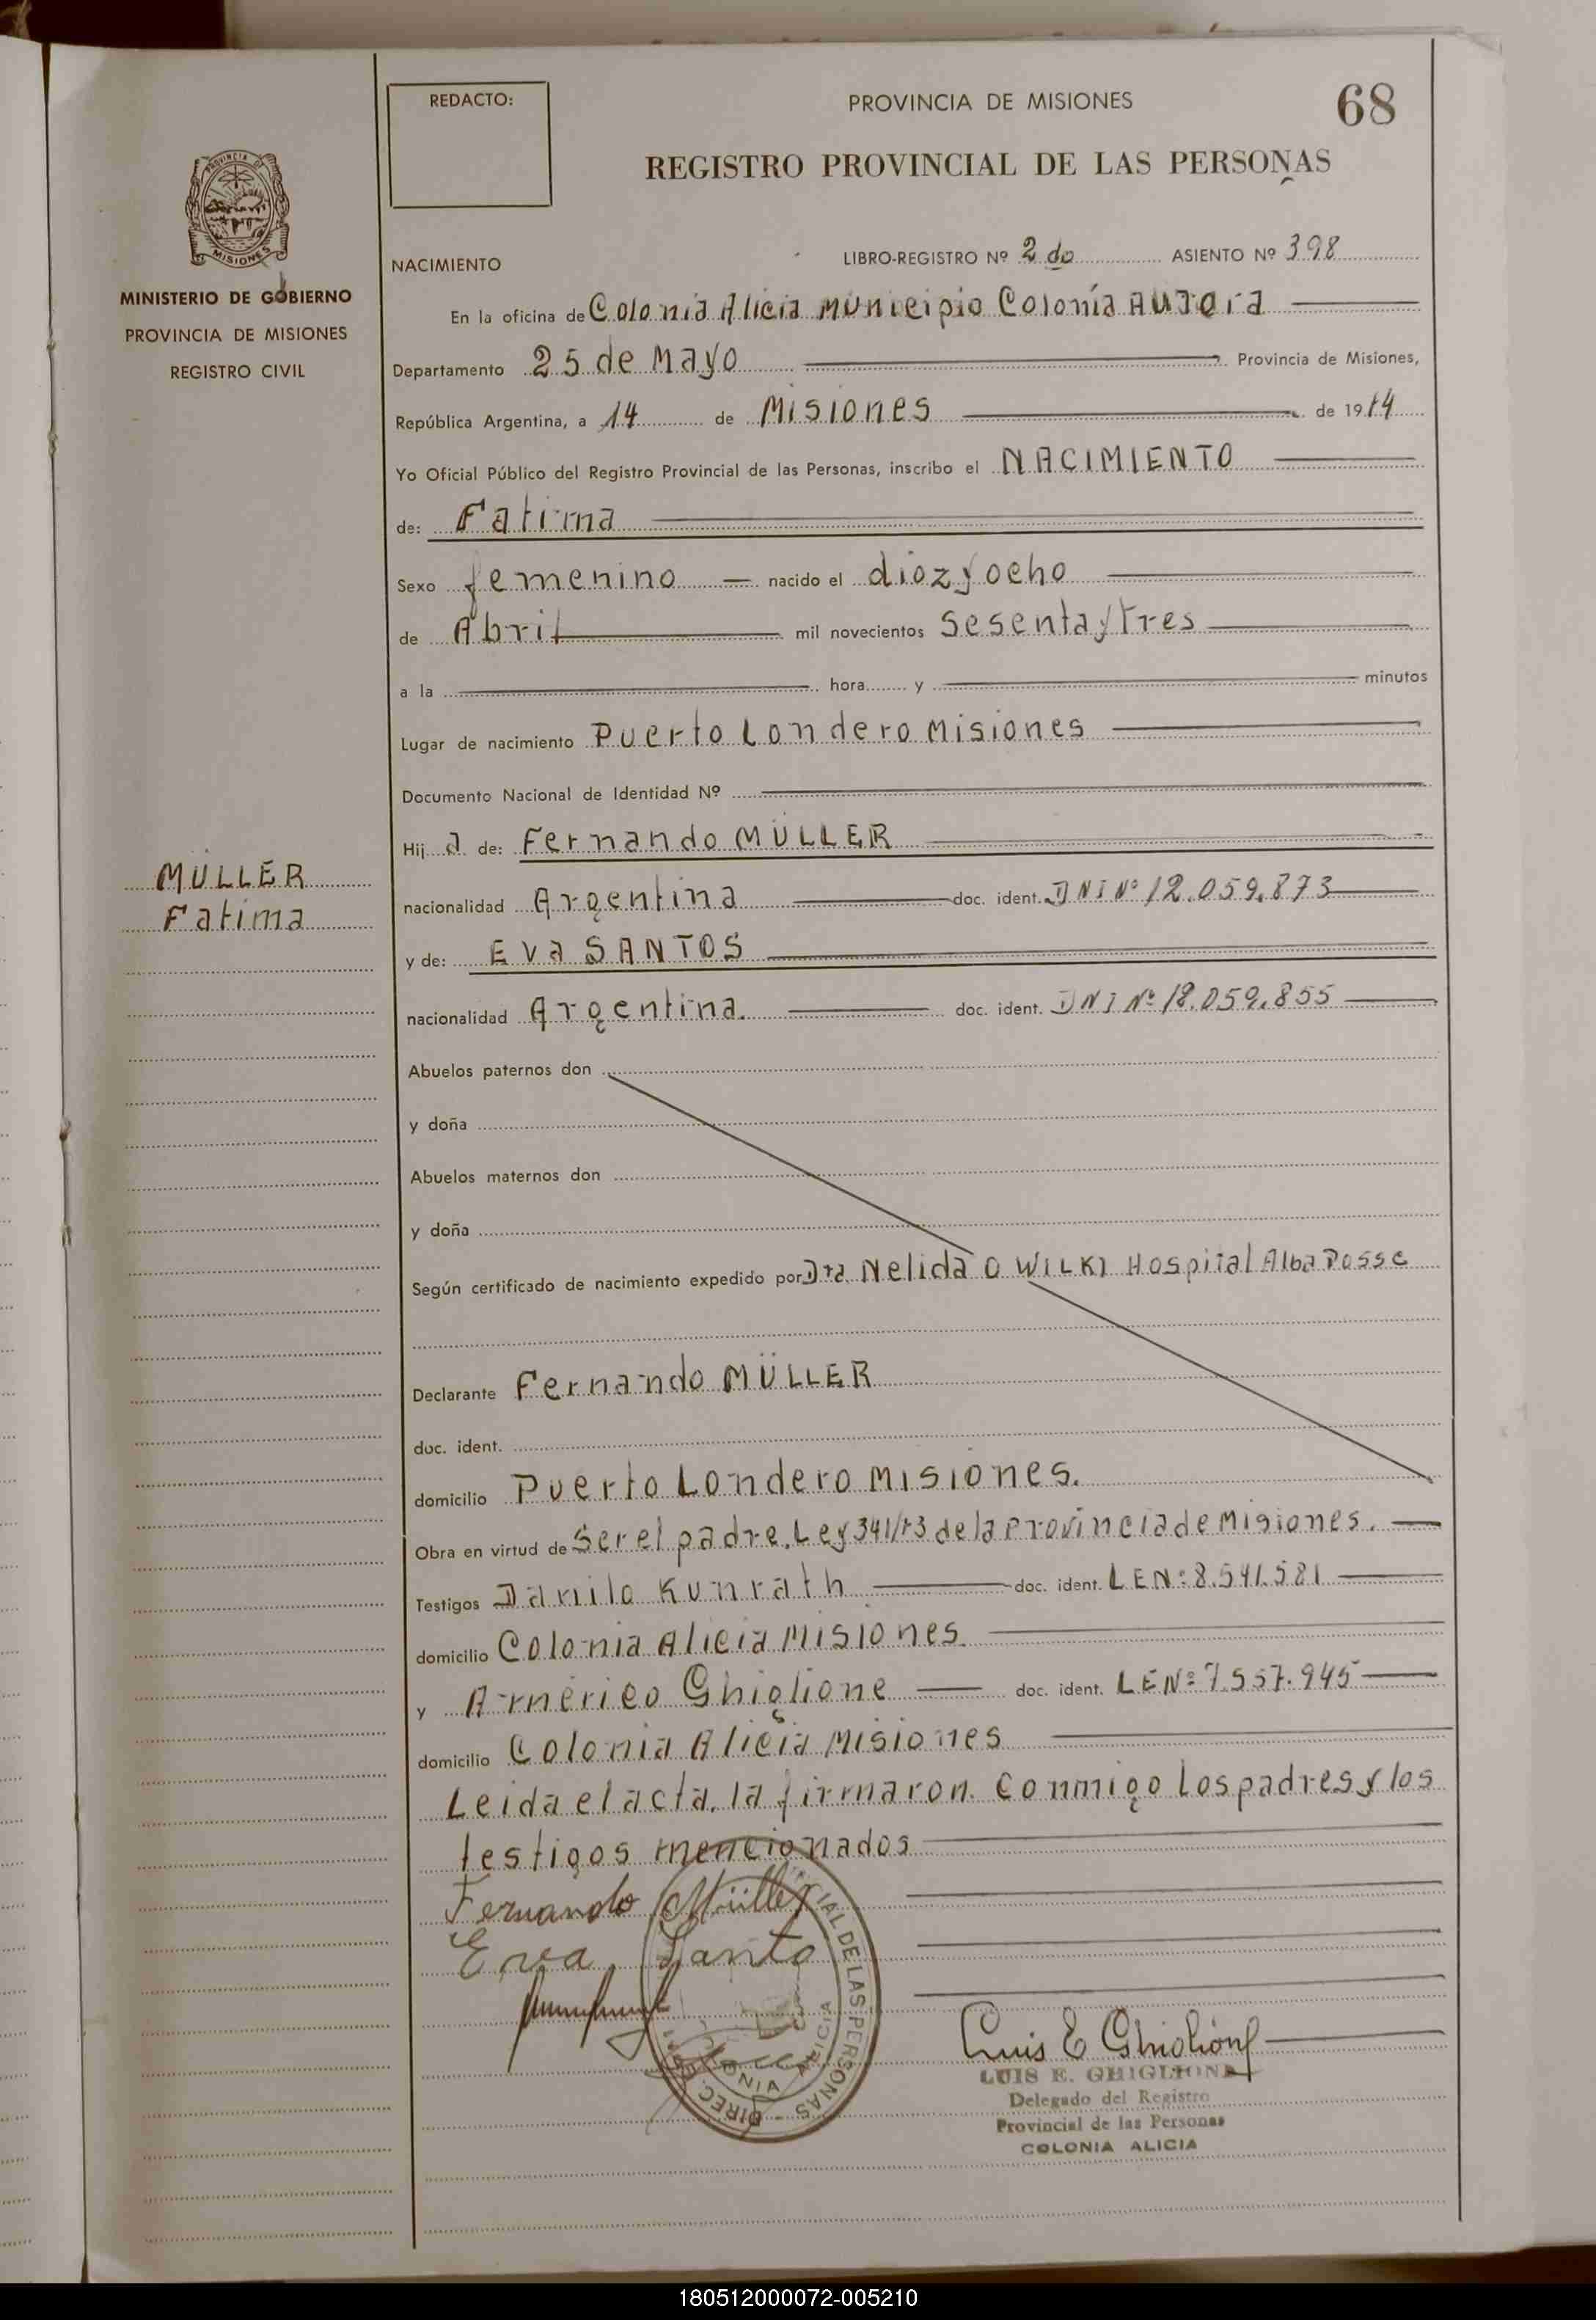 REDACTO:
PROVINCIA DE MISIONES
68
REGISTRO PROVINCIAL DE LAS PERSONAS
PROVINCIA DE
MISIONES
MINISTERIO DE GOBIERNO
PROVINCIA DE MISIONES
REGISTRO CIVIL
NACIMIENTO
LIBRO-REGISTRO Nº 2do ASIENTO Nº 398
En la oficina de Colonia Alicia Municipio Colonía Aurora
Departamento 25 de Mayo Provincia de Misiones,
República Argentina, a 14 de Misiones de 1974
Yo Oficial Público del Registro Provincial de las Personas, inscribo el NACIMIENTO
de: Fatima
Sexo femenino nacido el diozyocho
de Abril mil novecientos Sesentaytres
a la hora y minutos
Lugar de nacimiento Puerto Londero Misiones
Documento Nacional de Identidad Nº
Hij a de: Fernando MÜLLER
MÜLLER
Fatima
nacionalidad Argentina doc. ident. DNI Nº 12.059.873
y de: Eva SANTOS
nacionalidad Argentina. doc. ident. DNI Nº 18.059.855
Abuelos paternos don
y doña
Abuelos maternos don
y doña
Según certificado de nacimiento expedido por Dra. Nelida O WILKI Hospital Alba Posse
Declarante Fernando MÜLLER
doc. ident.
domicilio Puerto Londero Misiones.
Obra en virtud de Ser el padre. Ley 341/73 de la Provincia de Misiones.
Testigos Danilo Kunrath doc. ident. LENº 8.541.581
domicilio Colonia Alicia Misiones
y Américo Ghiglione doc. ident. LENº 7.557.945
domicilio Colonia Alicia Misiones
Leida el acta, la firmaron Conmigo Los padres y los
testigos mencionados
Fernando Müller
Eva Santo
Luis E Ghiglione
LUIS E. GHIGLIONE
Delegado del Registro
Provincial de las Personas
COLONIA ALICIA
180512000072-005210